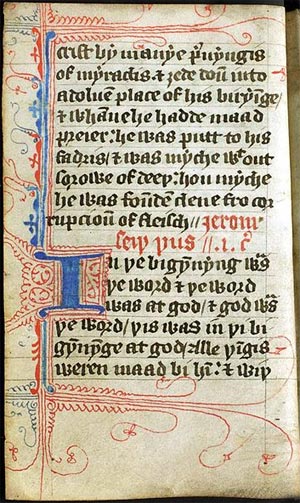 crist by manye p'uyngis
of myraclis & ȝede doū into
a doluen place of his biryīge/
& whāne he hadde maad
preier: he was putt to his
fadris/ & was myche wt out
sorowe of deeþ: hou myche
he was foūden clene fro cor
rupcioun of fleisch // Jerom
seiþ þus // .i. c̄
In þe bigȳnyng was
þe word & þe word
was at god/ & god was
þe word/ þis was in þi bi
gȳnȳge at god/ alle þīgis
weren maad bi hī: & wiþ